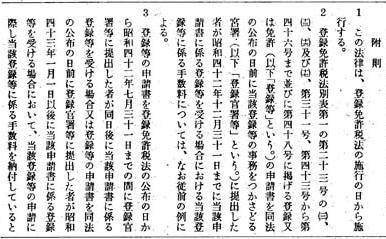 附 則
1 この法律は、登録免許税法の施行の日から施
行する。
2 登録免許税法別表第一の第二十三号の㈡、
㈢、㈥及び㈦、第三十一号、第四十三号から第
四十六号まで並びに第四十八号に掲げる登録又
は免許(以下「登録等」という。)の申請書を同法
の公布の日前に当該登録等の事務をつかさどる
官署(以下「登録官署等」という。)に提出した
者が昭和四十二年十二月三十一日までに当該申
請書に係る登録等を受ける場合における当該登
録等に係る手数料については、なお従前の例に
よる。
3 登録等の申請書を登録免許税法の公布の日か
ら昭和四十二年七月三十一日までの間に登録官
署等に提出した者が同日後に当該申請書に係る
登録等を受ける場合又は登録等の申請書を同法
の公布の日前に登録官署等に提出した者が昭和
四十三年一月一日以後に当該申請書に係る登録
等を受ける場合において、当該登録等の申請に
際し当該登録等に係る手数料を納付していると